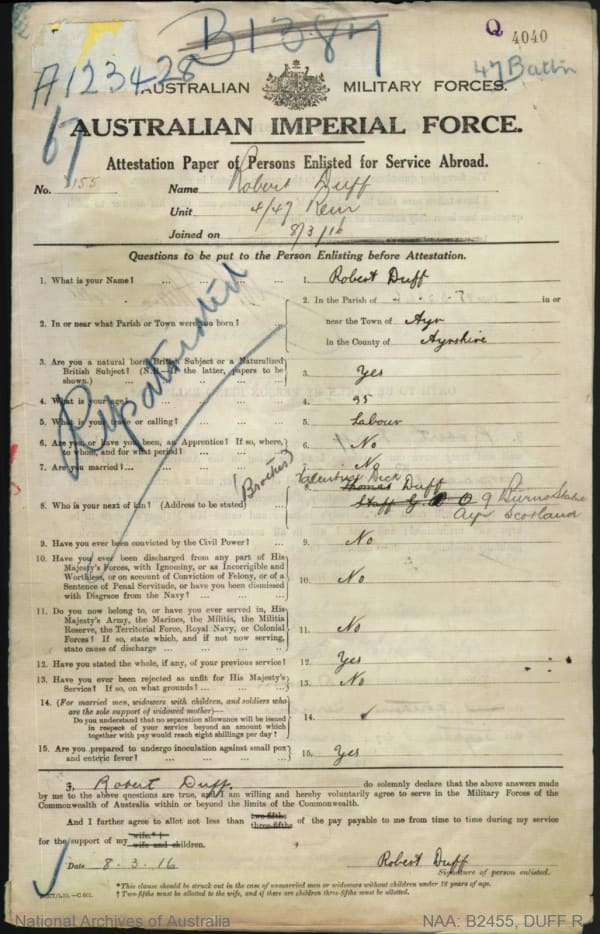 B1387
Q 4040
A123428
47 Battn
67
AUSTRALIAN MILITARY FORCES.
AUSTRALIAN IMPERIAL FORCE.
Attestation Paper of Persons Enlisted for Service Abroad.
No. 155 Name Robert Duff
Unit 4/47 Rein
Joined on 8/3/16
Questions to be put to the Person Enlisting before Attestation.
Repatriated
1. What is your Name? ... ... ... 1. Robert Duff
2. In or near what Parish or Town were you born? ... 2. In the Parish of in or
near the Town of Ayr
in the County of Ayrshire
3. Are you a natural born British Subject or a Naturalized
British Subject? (N.B.—If the latter, papers to be
shown.) ... ... ... 3. Yes
4. What is your age? ... ... ... 4. 35
5. What is your trade or calling? ... ... 5. Labour
6. Are you, or have you been, an Apprentice? If so, where,
to whom, and for what period? ... ... 6. No
7. Are you married? ... ... ... 7. No
(Brother) Valentine Dick
8. Who is your next of kin? (Address to be stated) 8. Thomas Duff
Staff G. P O 9 Burns Statue
Ayr Scotland
9. Have you ever been convicted by the Civil Power? ... 9. No
10. Have you ever been discharged from any part of His
Majesty's Forces, with Ignominy, or as Incorrigible and
Worthless, or on account of Conviction of Felony, or of a
Sentence of Penal Servitude, or have you been dismissed
with Disgrace from the Navy? ... ... 10. No
11. Do you now belong to, or have you ever served in, His
Majesty's Army, the Marines, the Militia, the Militia
Reserve, the Territorial Force, Royal Navy, or Colonial
Forces? If so, state which, and if not now serving,
state cause of discharge ... ... 11. No
12. Have you stated the whole, if any, of your previous service? 12. Yes
13. Have you ever been rejected as unfit for His Majesty's
Service? If so, on what grounds? ... ... 13. No
14. (For married men, widowers with children, and soldiers who
are the sole support of widowed mother)—
Do you understand that no separation allowance will be issued
in respect of your service beyond an amount which
together with pay would reach eight shillings per day? 14.
15. Are you prepared to undergo inoculation against small pox
and enteric fever? ... ... 15. Yes
I, Robert Duff. do solemnly declare that the above answers made
by me to the above questions are true, and I am willing and hereby voluntarily agree to serve in the Military Forces of the
Commonwealth of Australia within or beyond the limits of the Commonwealth.
And I further agree to allot not less than two-fifths three-fifths of the pay payable to me from time to time during my service
for the support of my wife.* wife and children.
Date 8.3.16 Robert Duff
Signature of person enlisted.
*This clause should be struck out in the case of unmarried men or widowers without children under 18 years of age.
† Two-fifths must be allotted to the wife, and if there are children three-fifths must be allotted.
National Archives of Australia NAA: B2455, DUFF R